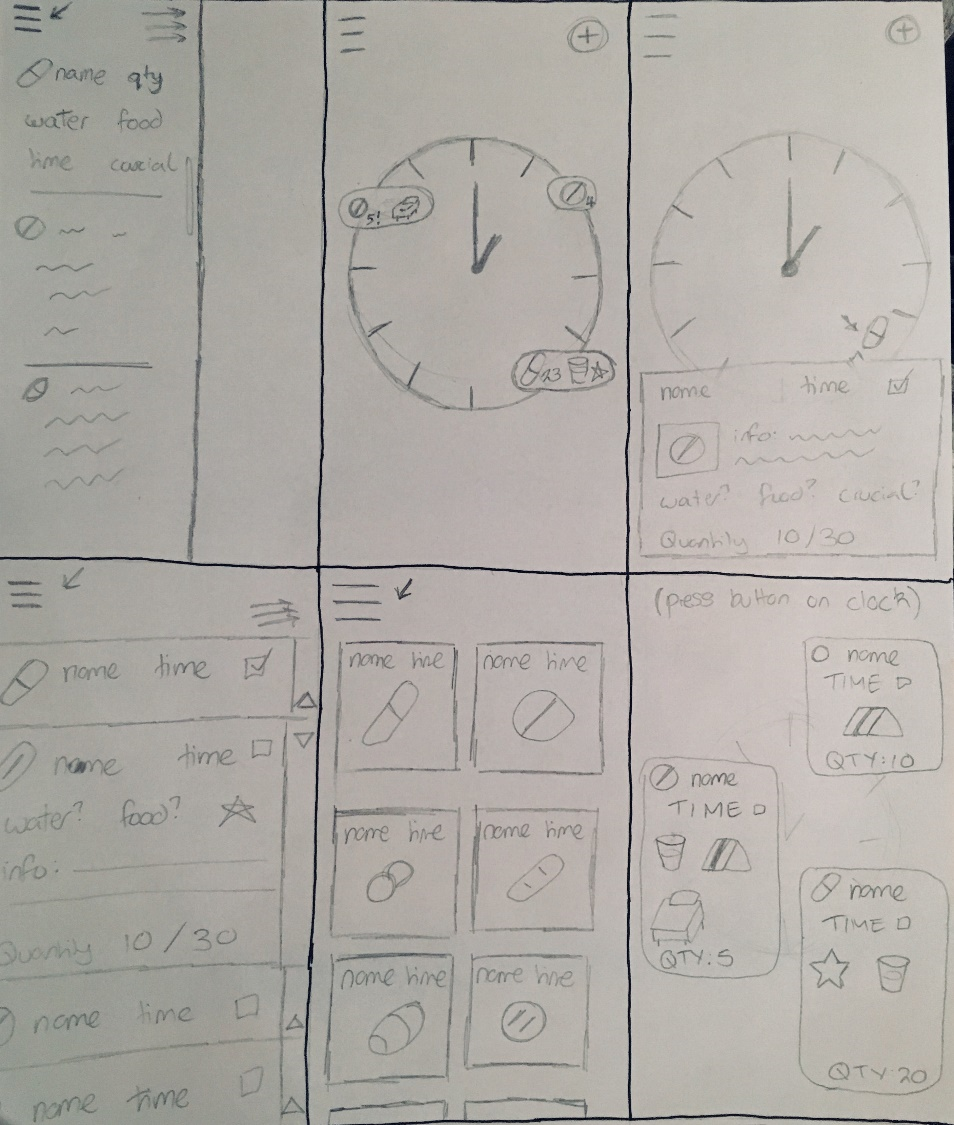 name qty
water food
time crucial
5!
4
23
name time
info:
water? food? crucial?
Quantity 10/30
name time
name time
water? food?
info:
Quantity 10/30
name time
name time
name time name time
name time name time
name time name time
(press button on clock)
name
TIME
QTY:10
name
TIME
QTY:5
name
TIME
QTY:20